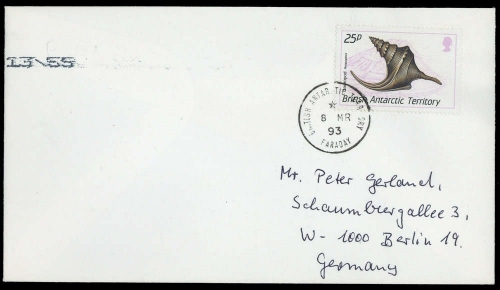 25p
British Antarctic Territory
13\55
BRITISH ANTARCTIC TERRITORY
8 MR
93
FARADAY
Mr. Peter Gerland,
Schaumburgallee 3,
W- 1000 Berlin 19.
Germany